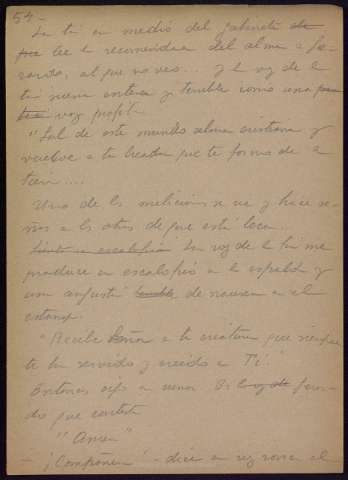 54-
La tía en medio del gabinete de
lee la recomendación del alma a Fer-
nando, al que no veo... y la voz de la
tía suena entera y terrible como una
voz
"Sal de este mundo alma cristiana y
vuelve a tu Creador que te formó de la
tierra....
Uno de los milicianos se ve y hace se-
ñas a los otros de que está loca.
La voz de la tía me
produce un escalofrío a la espalda y
una angustia de nausea en el
estómago.
"Recibe Señor a tu criatura que siempre
te ha servido y a Ti."
Entonces oigo a voz de Fernan-
do que contesta
"Amen"
- ¡ - dice a el